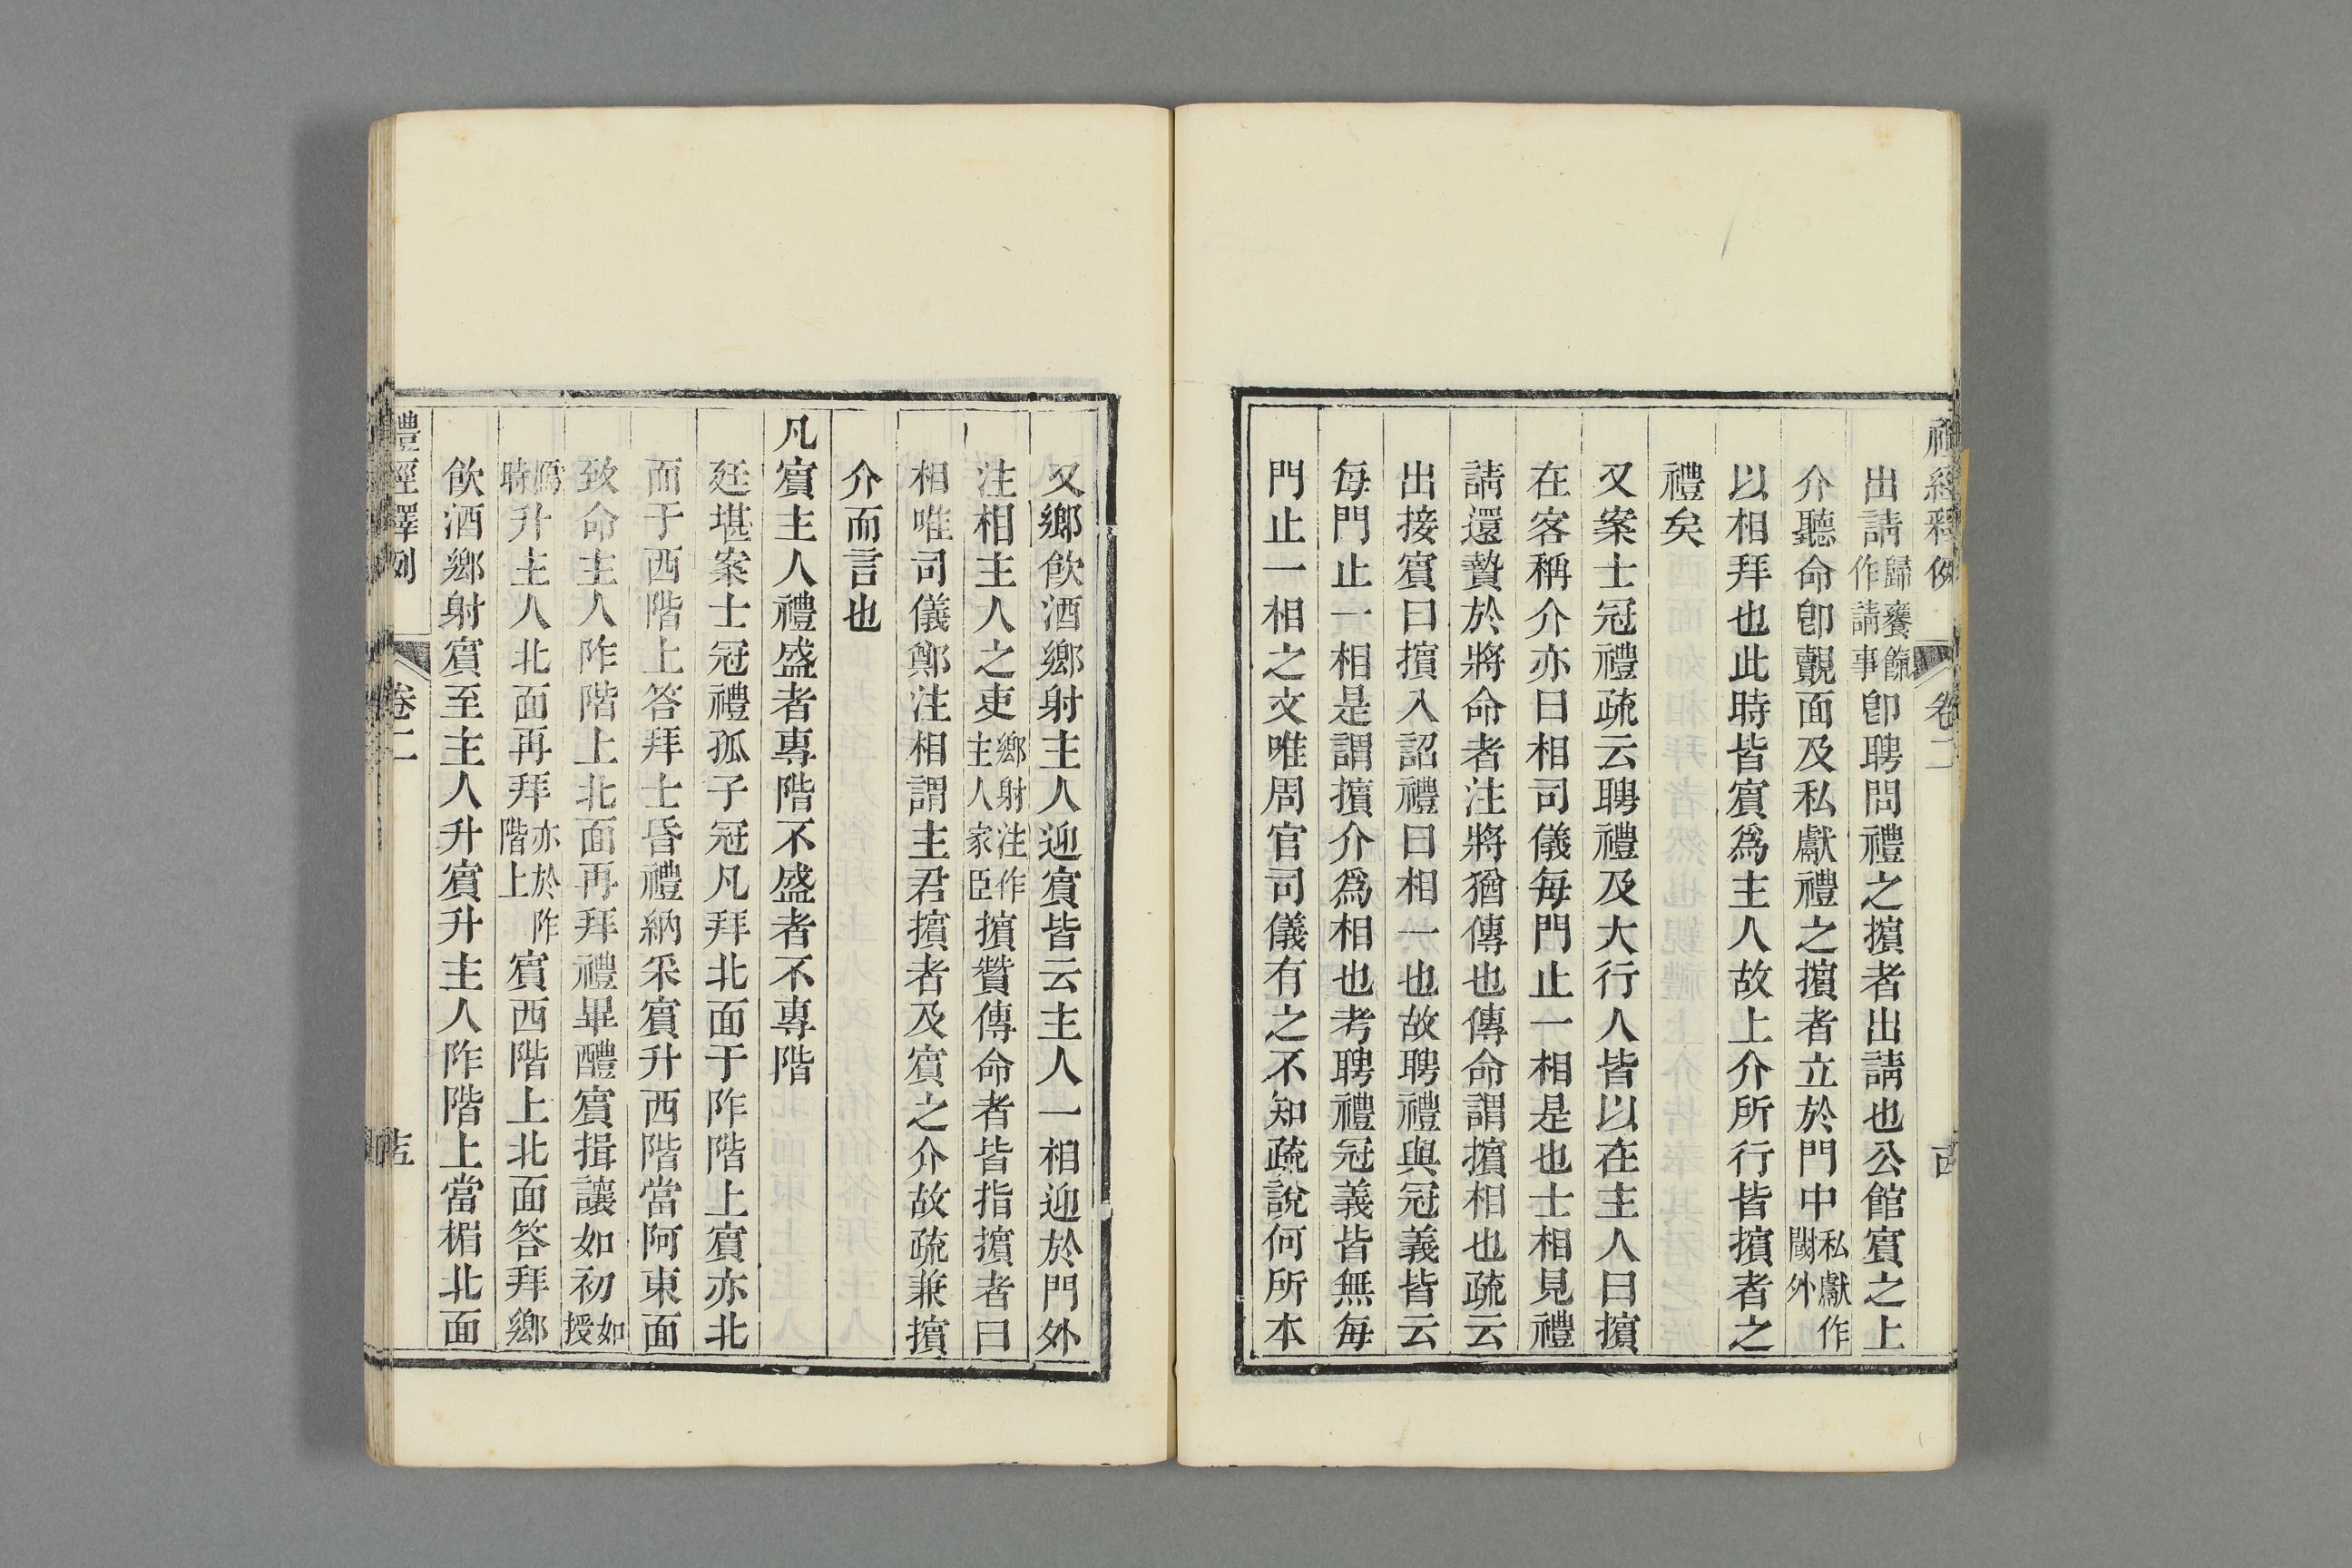 禮經釋例 卷二
出請歸饔餼作請事卽聘問禮之擯者出請也公館賓之上
介聽命卽覿面及私獻禮之擯者立於門中私獻作閾外
以相拜也此時皆賓爲主人故上介所行皆擯者之
禮矣
又案士冠禮疏云聘禮及大行人皆以在主人曰擯
在客稱介亦曰相司儀每門止一相是也士相見禮
請還贄於將命者注將猶傳也傳命謂擯相也疏云
出接賓曰擯入詔禮曰相一也故聘禮與冠義皆云
每門止一相是謂擯介爲相也考聘禮冠義皆無每
門止一相之文唯周官司儀有之不知疏說何所本
又鄉飮酒鄉射主人迎賓皆云主人一相迎於門外
注相主人之吏鄉射注作主人家臣擯贊傳命者皆指擯者曰
相唯司儀鄭注相謂主君擯者及賓之介故疏兼擯
介而言也
凡賓主人禮盛者專階不盛者不專階
廷堪案士冠禮孤子冠凡拜北面于阼階上賓亦北
面于西階上答拜士昏禮納采賓升西階當阿東面
致命主人阼階上北面再拜禮畢醴賓揖讓如初如授
鴈時升主人北面再拜亦於阼階上賓西階上北面答拜鄉
飮酒鄉射賓至主人升賓升主人阼階上當楣北面
禮經釋例 卷二